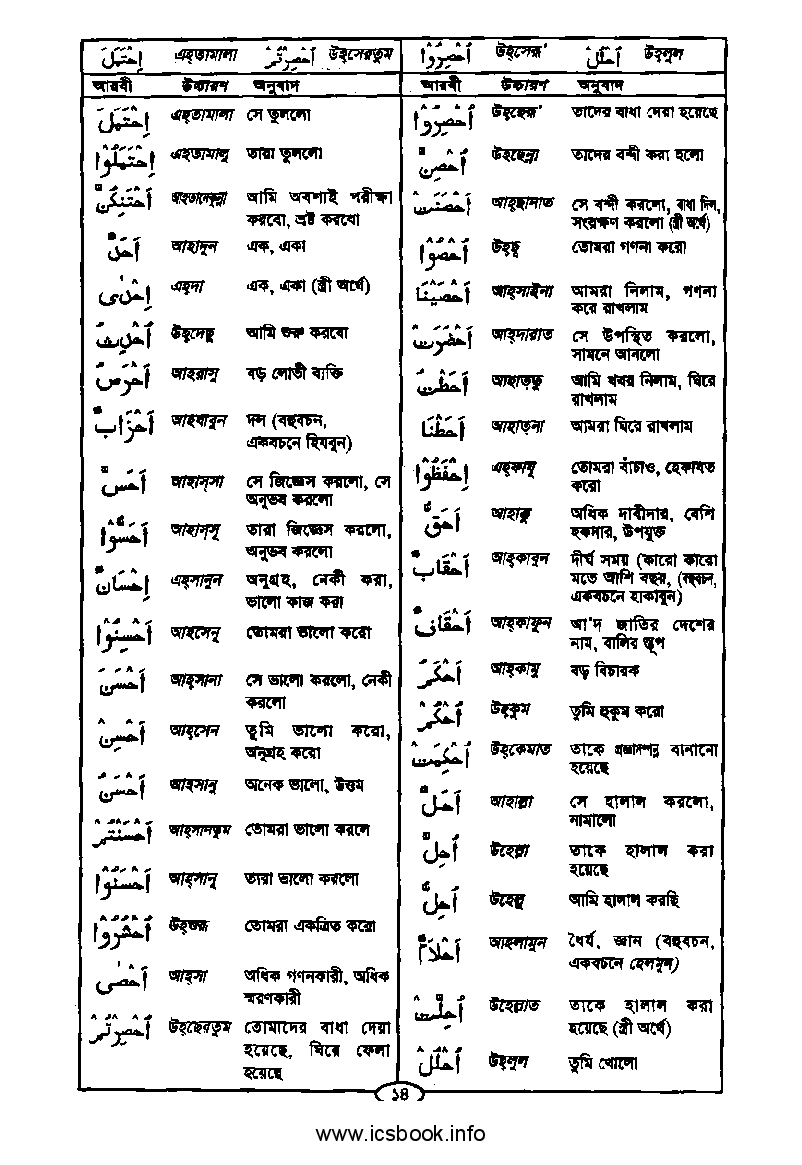 اِحْتَمَلَ এহ্তামালা اُحْصِرْتُمْ উহ্সেরতুম
আরবী উচ্চারণ অনুবাদ
اِحْتَمَلَ এহ্তামালা সে তুললো
اِحْتَمَلُوْا এহ্তামালু তারা তুললো
اَحْتَنِكَنَّ আহতানেকান্না আমি অবশ্যই পরীক্ষা
করবো, ভ্রষ্ট করবো
اَحَدٌ আহাদুন এক, একা
اِحْدٰى এহ্দা এক, একা (স্ত্রী অর্থে)
اُحْدِثُ উহ্দেছু আমি শুরু করবো
اَحْرَصُ আহরাসু বড় লোভী ব্যক্তি
اَحْزَابٌ আহযাবুন দল (বহুবচন,
একবচনে হিযবুন)
اَحَسَّ আহাস্সা সে জিজ্ঞেস করলো, সে
অনুভব করলো
اَحَسُّوْا আহাস্সু তারা জিজ্ঞেস করলো,
অনুভব করলো
اِحْسَانٌ এহ্সানুন অনুগ্রহ, নেকী করা,
ভালো কাজ করা
اَحْسِنُوْا আহসেনু তোমরা ভালো করো
اَحْسَنَ আহ্সানা সে ভালো করলো, নেকী
করলো
اَحْسِنْ আহ্সেন তুমি ভালো করো,
অনুগ্রহ করো
اَحْسَنُ আহসানু অনেক ভালো, উত্তম
اَحْسَنْتُمْ আহ্সানতুম তোমরা ভালো করলে
اَحْسَنُوْا আহ্সানু তারা ভালো করলো
اُحْشُرُوْا উহ্শুরু তোমরা একত্রিত করো
اَحْصٰى আহ্সা অধিক গণনকারী, অধিক
স্মরণকারী
اُحْصِرْتُمْ উহ্ছেরতুম তোমাদের বাধা দেয়া
হয়েছে, ঘিরে ফেলা
হয়েছে
اُحْصِرُوْا উহ্সেরু اُحْلُلْ উহ্লুল
আরবী উচ্চারণ অনুবাদ
اُحْصِرُوْا উহ্ছেরু তাদের বাধা দেয়া হয়েছে
اُحْصِنَّ উহ্ছেন্না তাদের বন্দী করা হলো
اَحْصَنَتْ আহ্ছানাত সে বন্দী করলো, বাধা দিল,
সংরক্ষণ করলো (স্ত্রী অর্থে)
اَحْصُوْا উহ্ছু তোমরা গণনা করো
اَحْصَيْنَا আহ্সাইনা আমরা নিলাম, গণনা
করে রাখলাম
اَحْضَرَتْ আহ্দারাত সে উপস্থিত করলো,
সামনে আনলো
اَحَطْتُ আহাত্তু আমি খবর নিলাম, ঘিরে
রাখলাম
اَحَطْنَا আহাত্না আমরা ঘিরে রাখলাম
اِحْفَظُوْا এহ্ফাযু তোমরা বাঁচাও, হেফাযত
করো
اَحَقُّ আহাক্কু অধিক দাবীদার, বেশি
হকদার, উপযুক্ত
اَحْقَابٌ আহ্কাবুন দীর্ঘ সময় (কারো কারো
মতে আশি বছর, (বহুবচন,
একবচনে হাকাবুন)
اَحْقَافٌ আহ্কাফুন আ'দ জাতির দেশের
নাম, বালির স্তূপ
اَحْكَمُ আহ্কামু বড় বিচারক
اُحْكُمْ উহ্কুম তুমি হুকুম করো
اُحْكِمَتْ উহ্কেমাত তাকে প্রজ্ঞাসম্পন্ন বানানো
হয়েছে
اَحَلَّ আহাল্লা সে হালাল করলো,
নামালো
اُحِلَّ উহেল্লা তাকে হালাল করা
হয়েছে
اُحِلُّ উহেল্লু আমি হালাল করছি
اَحْلَامٌ আহলামুন ধৈর্য, জ্ঞান (বহুবচন,
একবচনে হেলমুন)
اُحِلَّتْ উহেল্লাত তাকে হালাল করা
হয়েছে (স্ত্রী অর্থে)
اُحْلُلْ উহ্লুল তুমি খোলো
১৪
www.icsbook.info